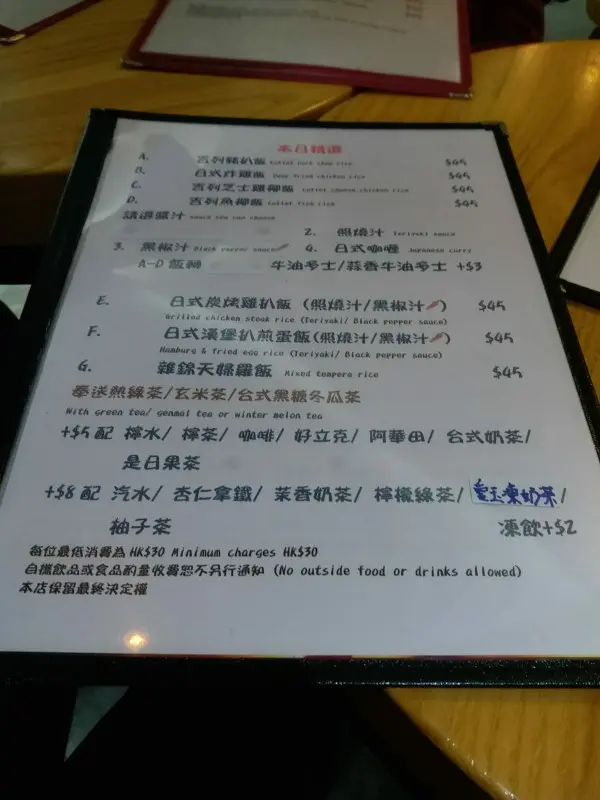 本日精選
A. 吉列豬扒飯 Cutlet Pork chop rice $45
B. 日式炸雞飯 Deep fried chicken rice $45
C. 吉列芝士雞柳飯 Cutlet cheese chicken rice $45
D. 吉列魚柳飯 Cutlet fish rice $45
請選醬汁 sauce you can choose
2. 照燒汁 Teriyaki sauce
3. 黑椒汁 Black pepper sauce 4. 日式咖喱 Japanese curry
A-D 飯轉 牛油多士/蒜香牛油多士 +$3
E. 日式炭烤雞扒飯 (照燒汁/黑椒汁) $45
Grilled chicken steak rice (Teriyaki/ Black pepper sauce)
F. 日式漢堡扒煎蛋飯(照燒汁/黑椒汁) $45
Hamburg & fried egg rice (Teriyaki/ Black pepper sauce)
G. 雜錦天婦羅飯 Mixed tempera rice $45
奉送熱綠茶/玄米茶/台式黑糖冬瓜茶
With green tea/ genmai tea or winter melon tea
+$5 配 檸水/ 檸茶/ 咖啡/ 好立克/ 阿華田/ 台式奶茶/
是日果茶
+$8 配 汽水/ 杏仁拿鐵/ 茉香奶茶/ 檸檬綠茶/ 凍奶茶/
柚子茶 凍飲+$2
每位最低消費為 HK$30 Minimum charges HK$30
自攜飲品或食品酌量收費恕不另行通知 (No outside food or drinks allowed)
本店保留最終決定權